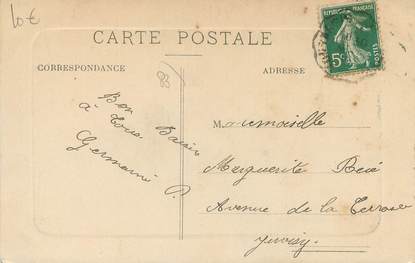 10€
CARTE POSTALE
CORRESPONDANCE
ADRESSE
REPUBLIQUE FRANÇAISE
5c
POSTES
83
Bon Baiser
à Tous
Germaine P.
Mademoiselle
Marguerite
Avenue de la Terrasse
Juvisy